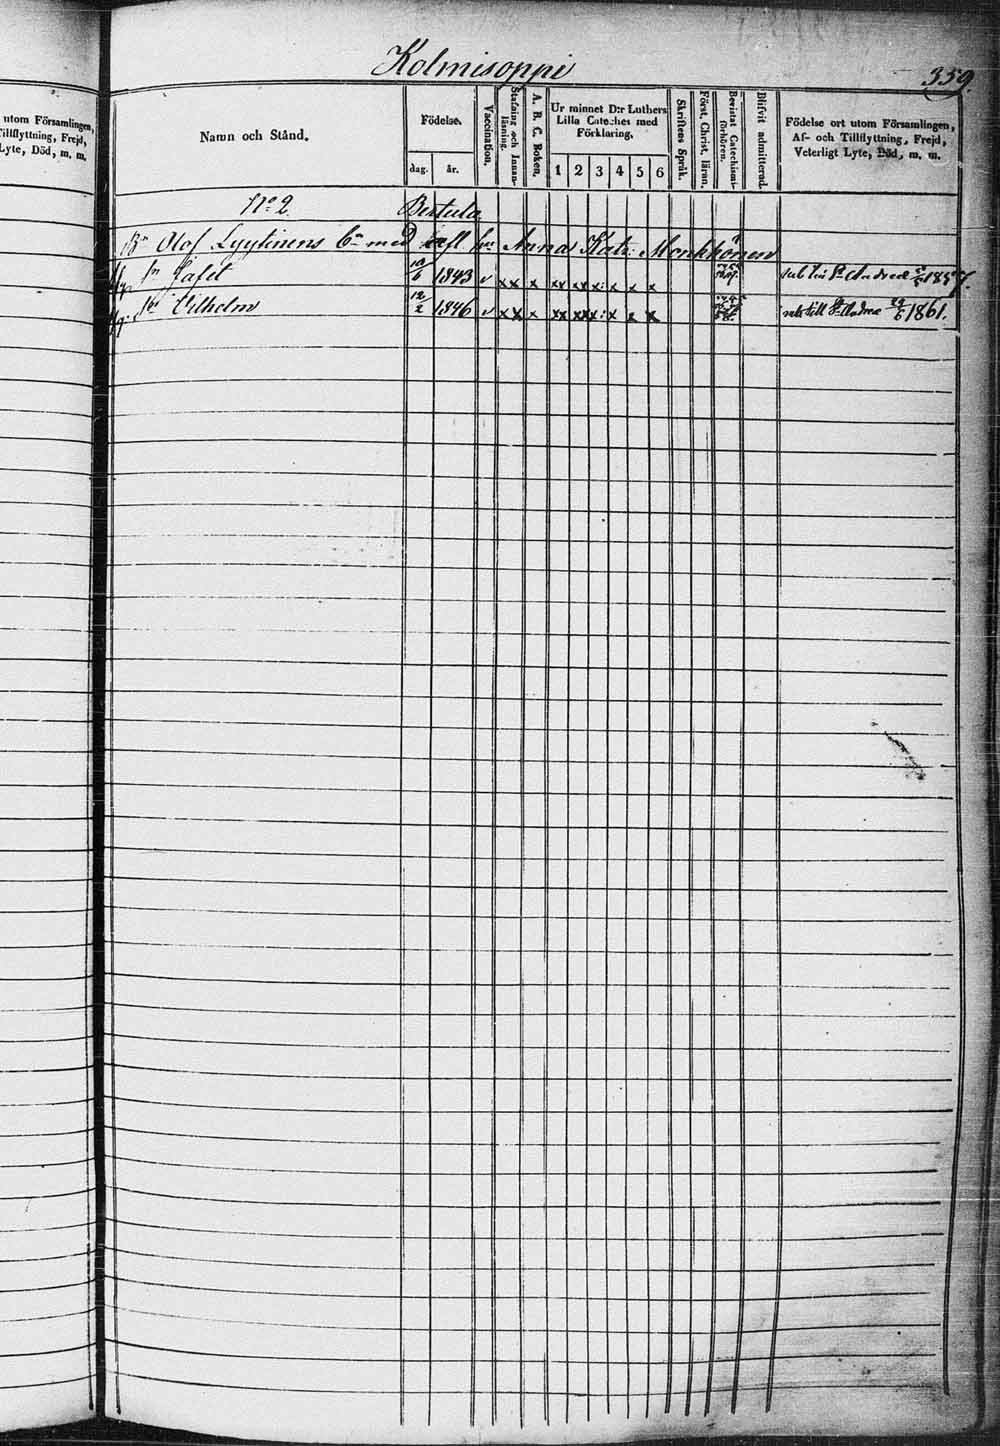 utom Församlingen,
Tillflyttning, Frejd,
Lyte, Död, m. m.
Kolmisoppi
359.
Namn och Stånd.
Födelse.
dag.
år.
Vaccination.
Stafning och Innan-
läsning.
A. B. C. Boken.
Ur minnet D:r Luthers
Lilla Cateches med
Förklaring.
1 2 3 4 5 6
Skriftens Språk.
Först. Christ. läran.
Bevistat Catechismi-
förhören.
Blifvit admitterad.
Födelse ort utom Församlingen,
Af- och Tillflyttning, Frejd,
Veterligt Lyte, Död, m. m.
No 2. Bertula
Bn Olof Lyytinens Bn med afl. hu Anna Katr: Monkhönen
Sn Jafet 10/6 1843 v x x x x x x x x : x x x Andreæ 1857.
Sn Vilhelm 12/2 1846 v x x x x x x x x : x x x till Andreæ 29/6 1861.